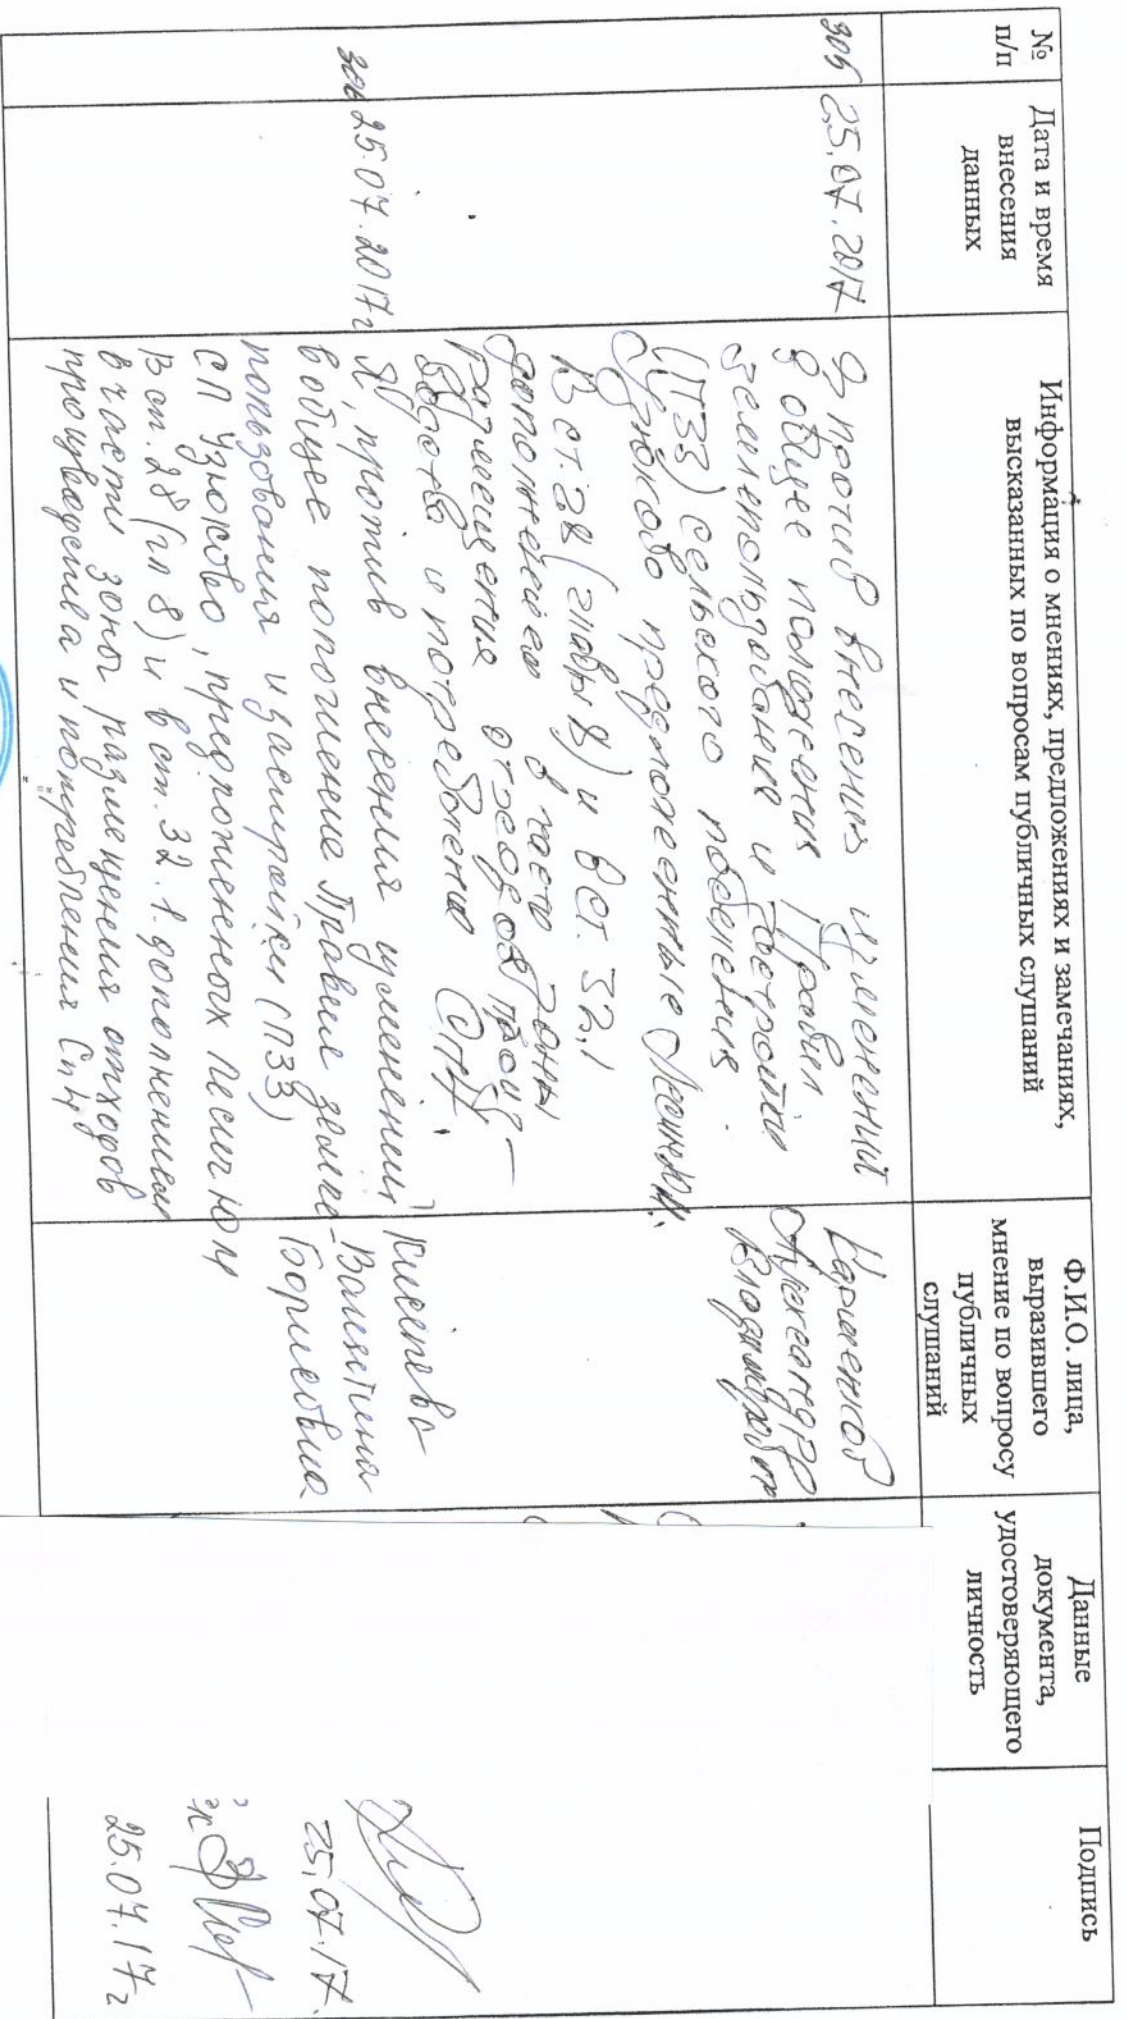 №
п/п
Дата и время
внесения
данных
Информация о мнениях, предложениях и замечаниях,
высказанных по вопросам публичных слушаний
Ф.И.О. лица,
выразившего
мнение по вопросу
публичных
слушаний
Данные
документа,
удостоверяющего
личность
Подпись
305
25.07.2017
Я против внесения изменений
в общее положения Правил
землепользования и застройки
(ПЗЗ) сельского поселения
Узюково предложенные Лесиным.
В ст. 28 (главы 8) и в ст. 32,1
дополнением в части зоны
размещения отходов произ-
водства и потребления СП4.
Александр
Владимирович
25.07.17.
306
25.07.2017г
Я, против внесения изменений
в общее положение Правил земле-
пользования и застройки (ПЗЗ)
СП Узюково, предложенных Лесиным
В ст. 28 (гл 8) и в ст. 32.1. дополнением
в части зоны размещения отходов
производства и потребления Сп4
Валентина
Борисовна
25.07.17г